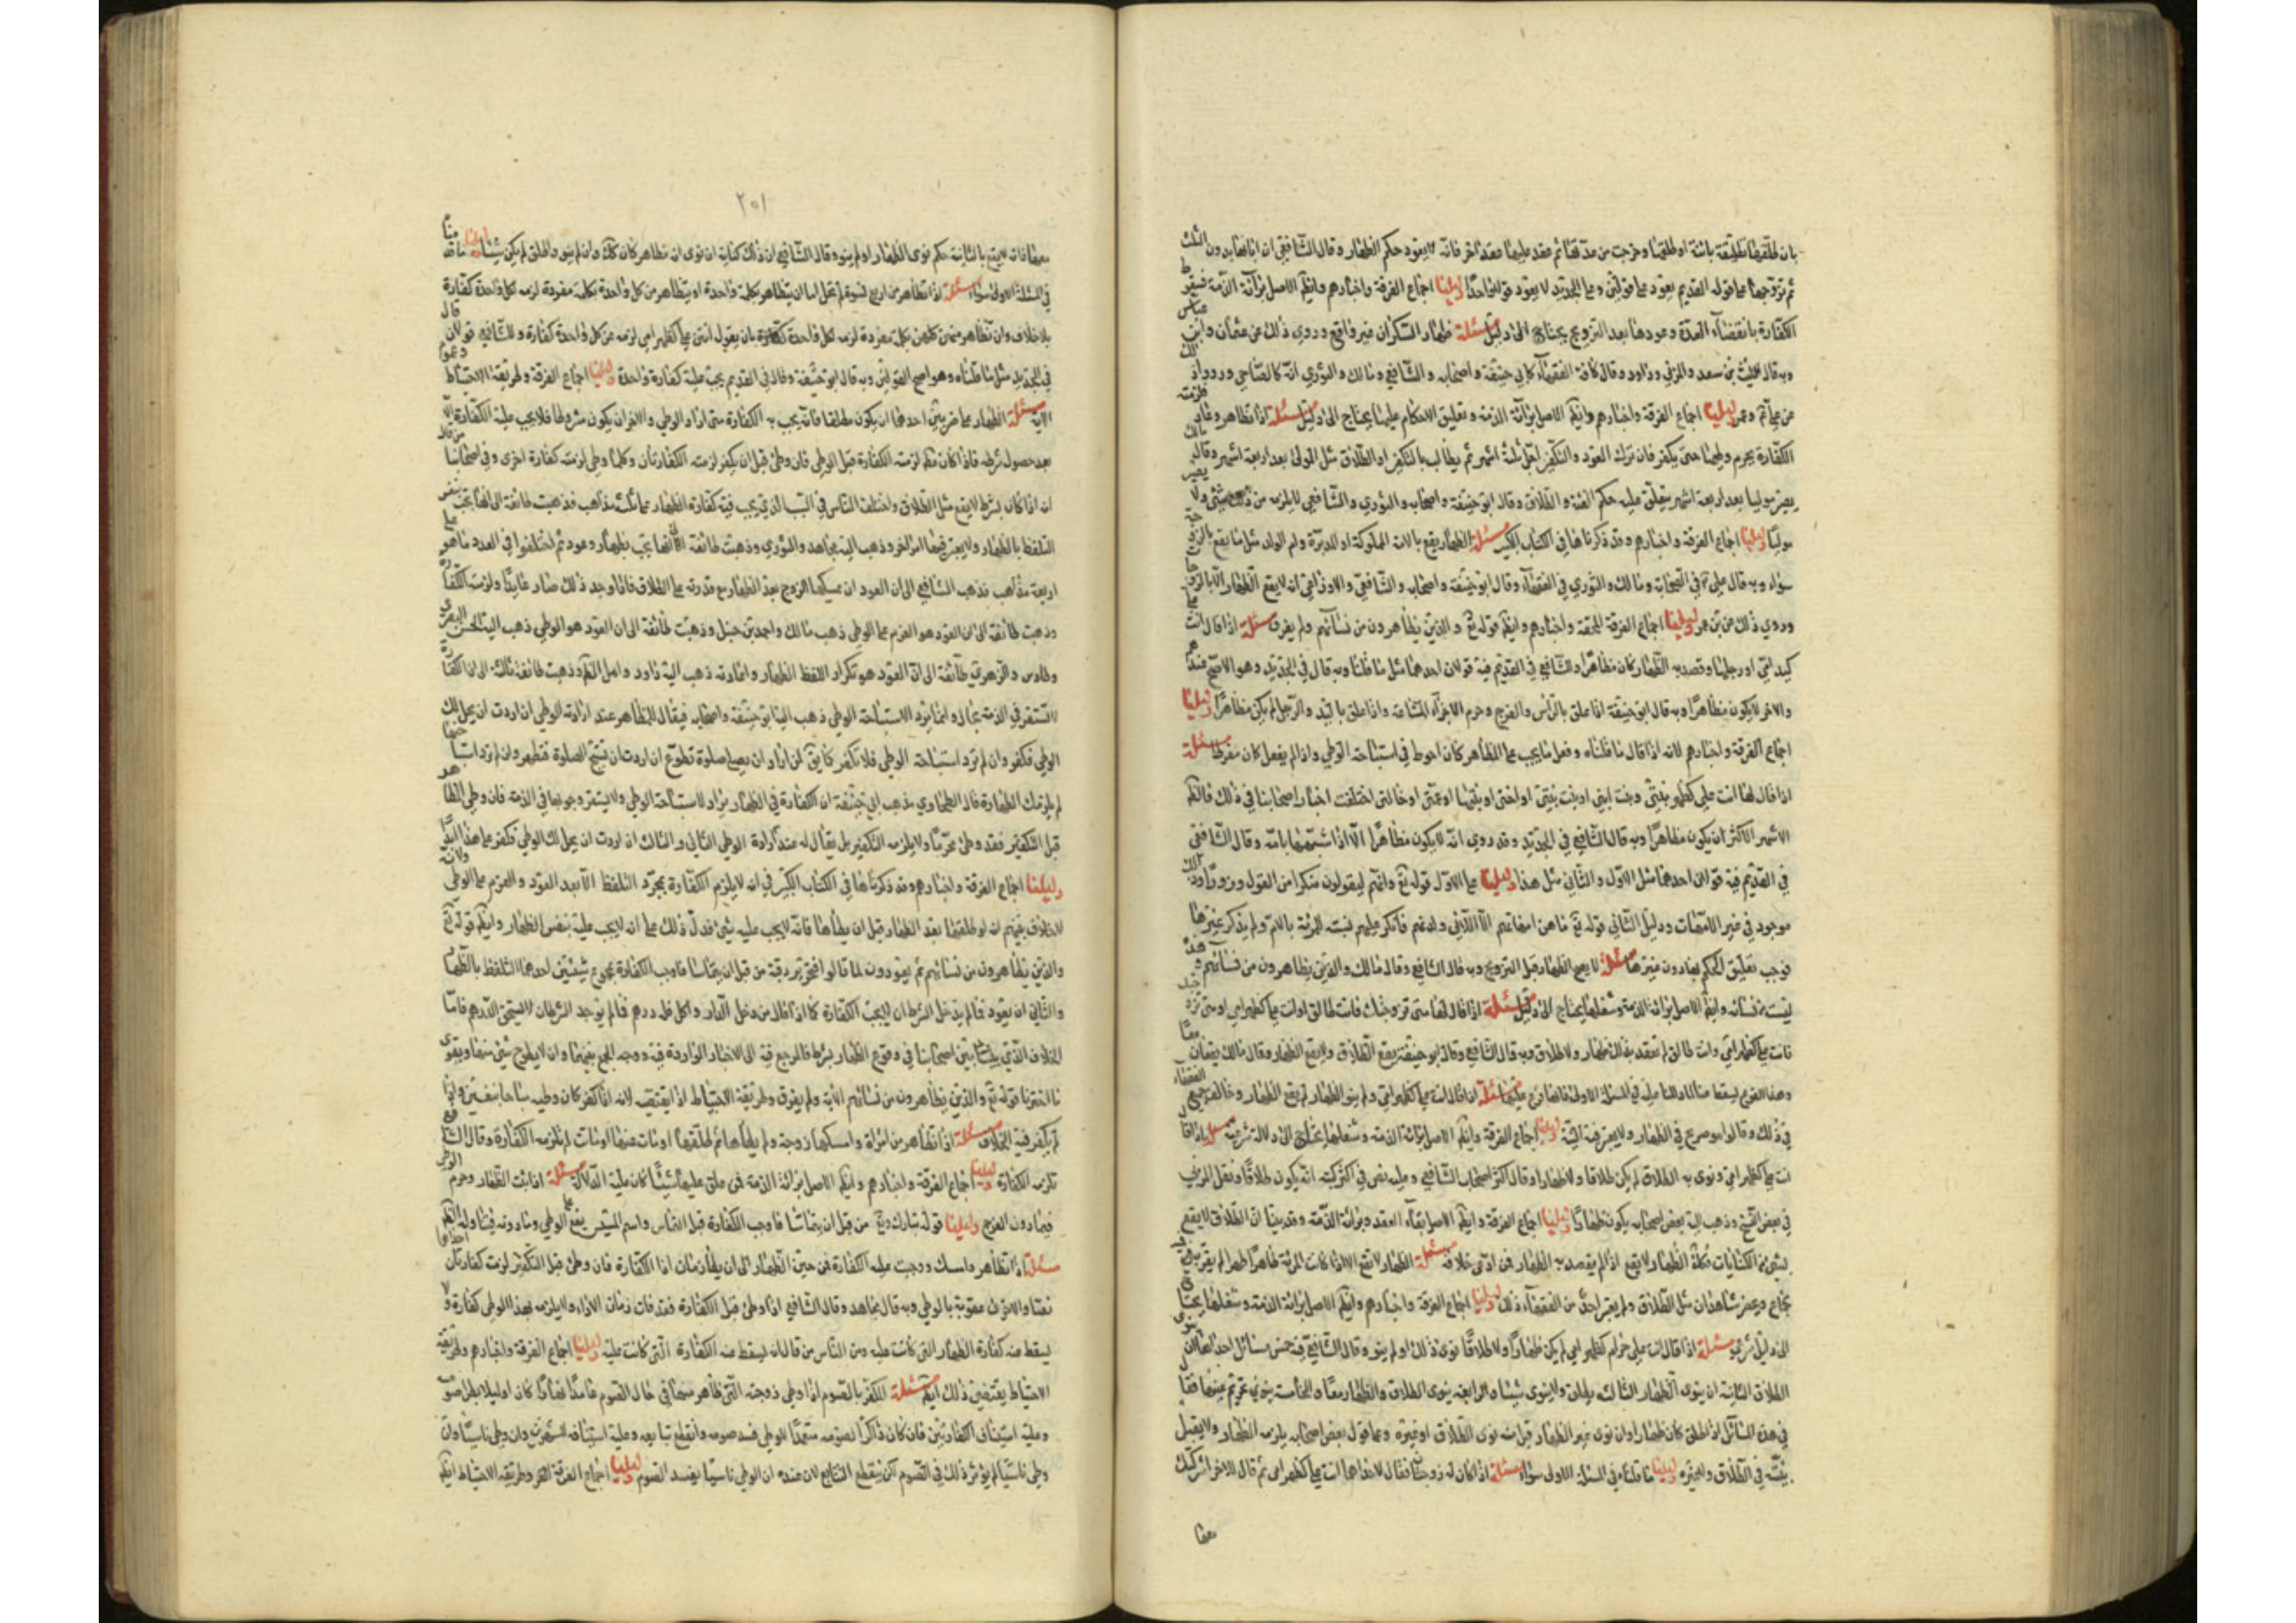 بان طلقها تطليقة بائنة او طلقها وخرجت من عدتها ثم عقد عليها عقد اخر فانه لا يعود حكم الظهار وقال الشافعي ان ابانها بدون الثلث
ثم تزوجها على قوله القديم يعود على قولين وعلى الجديد لا يعود قولا واحدا دليلنا اجماع الفرقة واخبارهم وايضا الاصل برآئة الذمة فسقوط
الكفارة بانقضاء العدة وعودها بعد التزويج يحتاج الى دليل مسئلة ظهار السكران غير واقع وروي ذلك عن عثمان وابن عباس
وبه قال الليث بن سعد والمزني وداود وقال كافة الفقهاء كابي حنيفة واصحابه والشافعي ومالك والثوري انه كالصاحي ورووا ذلك
عن علي وعمر دليلنا اجماع الفرقة واخبارهم وايضا الاصل برآئة الذمة وتعليق الاحكام عليها يحتاج الى دليل مسئلة اذا تظاهر وعاد فلزمته
الكفارة يحرم وطيها حتى يكفر فان ترك العود والتكفير اجل ثلثة اشهر ثم يطالب بالتكفير او الطلاق مثل المولى بعد اربعة اشهر وقال مالك
يصير موليا بعد اربعة اشهر يتعلق عليه حكم الفئة والطلاق وقال ابو حنيفة واصحابه والثوري والشافعي لا يلزمه من ذلك شئ ولا يصير
موليا دليلنا اجماع الفرقة واخبارهم وقد ذكرناها في الكتاب الكبير مسئلة الظهار يقع بالامة المملوكة او المدبرة وام الولد مثل ما يقع بالزوجة
سواء وبه قال علي في الصحابة ومالك والثوري في الفقهاء وقال ابو حنيفة واصحابه والشافعي والاوزاعي انه لا يقع الظهار الا بالزوجات
وروي ذلك عن ابن عمر دليلنا اجماع الفرقة المحقة واخبارهم وايضا قوله تع والذين يظاهرون من نسائهم ولم يفرق مسئلة اذا قال انت علي
كيد امي او رجلها وقصد به الظهار كان مظاهرا وللشافعي في القديم فيه قولان احدهما مثل ما قلناه وبه قال في الجديد وهو الاصح عندهم
والاخر لا يكون مظاهرا وبه قال ابو حنيفة اذا علق بالرأس والفرج وحرم الاجزاء المشاعة واذا علق باليد والرجل لم يكن مظاهرا دليلنا
اجماع الفرقة واخبارهم لانه اذا قال ما قلناه وفعل ما يجب على المظاهر كان احوط في استباحة الوطي واذا لم يفعل كان مفرطا مسئلة
اذا قال لها انت علي كظهر بنتي وبنت ابني او بنت بنتي او اختي او بنتها او عمتي او خالتي اختلفت اخبار اصحابنا في ذلك فالظهر
الاشهر الاكثر ان يكون مظاهرا وبه قال الشافعي في الجديد وقد روي انه لا يكون مظاهرا الا اذا شبهها بامه وقال الشافعي
في القديم فيه قولان احدهما مثل الاول والثاني مثل هذا دليلنا على الاول قوله تع وانهم ليقولون منكرا من القول وزورا وذلك
موجود في غير الامهات ودليل الثاني قوله تع ما هن امهاتهم ان امهاتهم الا اللائي ولدنهم فانكر عليهم تشبيه المرئة بالام ولم يذكر غيرها
فوجب تعليق الحكم بها دون غيرها مسئلة لا يصح الظهار قبل التزويج وبه قال الشافعي وقال مالك والذين يظاهرون من نسائهم وهذه
ليست من نسائه وايضا الاصل برائة الذمة وشغلها يحتاج الى دليل مسئلة اذا قال لها متى تزوجتك فانت طالق وانت علي كظهر امي او متى تزوجتك
فانت علي كظهر امي وانت طالق لم ينعقد بذلك ظهار ولا طلاق وبه قال الشافعي وقال ابو حنيفة يقع الطلاق ولا يقع الظهار وقال مالك يقعان معا
في ذلك وقالوا هو صريح في الظهار ولا يعتبر فيه النية دليلنا اجماع الفرقة وايضا الاصل برائة الذمة وشغلها يحتاج الى دلالة شرعية مسئلة اذا قال
انت علي كظهر امي ونوى به الطلاق لم يكن طلاقا ولا ظهارا وقال اكثر اصحاب الشافعي وعليه نص في اكثر كتبه انه يكون طلاقا ونقل المزني
في بعض النسخ وذهب اليه بعض اصحابه يكون ظهارا دليلنا اجماع الفرقة وايضا الاصل بقاء العقد وبرائة الذمة وقد بينا ان الطلاق لا يقع
بشئ من الكنايات وكذا الظهار لا يقع اذا لم يقصد به الظهار فمن ادعى خلافه مسئلة الظهار لا يقع الا اذا كانت المرئة طاهرا طهرا لم يقربها فيه
بجماع ويحضر شاهدان مثل الطلاق ولم يعتبر احد من الفقهاء ذلك دليلنا اجماع الفرقة واخبارهم وايضا الاصل برائة الذمة وشغلها يحتاج
الى دليل شرعي مسئلة اذا قال انت علي حرام كظهر امي لم يكن ظهارا ولا طلاقا نوى ذلك او لم ينو وقال الشافعي فيه خمس مسائل احداها ان ينوي
الطلاق الثانية ان ينوى الظهار الثالثة يطلق ولا ينوى شيئا والرابعة ينوى الطلاق والظهار معا والخامسة ينوي تحريم عينها فقال
في هذه المسائل اذا اطلق كان ظهارا وان نوى غير الظهار قبل منه نوى الطلاق او غيره وعلى قول بعض اصحابه يلزمه الظهار ولا يقبل
نيته في الطلاق ولا غيره دليلنا ما قلناه في المسئلة الاولى سواء مسئلة اذا كان له زوجتان فقال لاحداهما انت علي كظهر امي ثم قال للاخرى اشركتك
معها
٢٥١
معها فانه لا يقع بالثانية حكم نوى الظهار او لم ينو وقال الشافعي ان ذلك كناية ان نوى ان تظاهر كان كذلك وان لم ينو واطلق لم يكن شيئا دليلنا ما قلناه
في المسئلة الاولى سواء مسئلة اذا تظاهر من اربع نسوة لم يخل اما ان يتظاهر بكلمة واحدة او يتظاهر من كل واحدة بكلمة مفردة لزمه لكل واحدة كفارة
بلا خلاف وان تظاهر منهن كلهن بكلمة مفردة لزمه لكل واحدة كفارة بان يقول انتن علي كظهر امي لزمه عن كل واحدة كفارة وللشافعي قولان قال
في الجديد مثل ما قلناه وهو اصح القولين وبه قال ابو حنيفة وقال في القديم يجب عليه كفارة واحدة دليلنا اجماع الفرقة وطريقة الاحتياط
مسئلة الظهار على ضربين احدهما ان يكون مطلقا فانه يجب به الكفارة متى اراد الوطي والاخر ان يكون مشروطا فلا يجب عليه الكفارة الا
بعد حصول شرطه فاذا كان مطلقا لزمته الكفارة قبل الوطي فان وطئ قبل ان يكفر لزمته الكفارتان وكلما وطي لزمته كفارة اخرى وفي اصحابنا من قال
ان اذا كان بشرط لا يقع مثل الطلاق واختلف الناس في السبب الذي يجب فيه كفارة الظهار على ثلثة مذاهب فذهبت طائفة الى انها تجب بنفس
التلفظ بالظهار ولا يعتبر فيها امر اخر وذهب اليه مجاهد والثوري وذهبت طائفة الى انها تجب بظهار وعود ثم اختلفوا في العود ما هو على
اربعة مذاهب فذهب الشافعي الى ان العود ان يمسكها الزوج بعد الظهار مع قدرته على الطلاق فاذا وجد ذلك صار عايدا ولزمته الكفارة
وذهبت طائفة الى ان العود هو العزم على الوطي ذهب مالك واحمد بن حنبل وذهبت طائفة الى ان العود هو الوطي ذهب اليه الحسن البصري
وطاوس والزهري وطائفة الى ان العود هو تكرار اللفظ الظهار واعادته ذهب اليه داود واهل الظاهر وذهبت طائفة ثالثة الى ان الكفارة
لا تستقر في الذمة بحال وانما يراد لاستباحة الوطي ذهب اليه ابو حنيفة واصحابه فيقال للمظاهر عند ارادته الوطي ان اردت ان يحل لك
الوطي فكفر وان لم ترد استباحة الوطي فلا تكفر كما يق لمن اراد ان يصلي صلوة تطوع ان اردت ان تستبيح الصلوة فتطهر وان لم ترد استباحتها
لم يلزمك الطهارة قال الطحاوي مذهب ابي حنيفة ان الكفارة في الظهار يراد لاستباحة الوطي ولا يستقر وجوبها في الذمة فان وطي المظاهر
قبل التكفير فقد وطئ محرما ولا يلزمه التكفير بل يقال له عند ارادة الوطي الثاني والثالث ان اردت ان يحل لك الوطي فكفر على هذا ابدا
دليلنا اجماع الفرقة واخبارهم وقد ذكرناها في الكتاب الكبير في انه لا يلزم الكفارة بمجرد التلفظ الا بعد العود والعزم على الوطي ولانه
لا خلاف بينهم انه لو طلقها بعد الظهار قبل ان يطأها فانه لا يجب عليه شئ فدل ذلك على انه لا يجب عليه بنفس الظهار وايضا قوله تع
والذين يظاهرون من نسائهم ثم يعودون لما قالوا فتحرير رقبة من قبل ان يتماسا فاوجب الكفارة بمجموع شيئين احدهما التلفظ بالظهار
والثاني ان يعود فما لم يدخل الشرطان لا يجب الكفارة كما اذا قال من دخل الدار واكل فله درهم فما لم يوجد الشرطان لا يستحق الدرهم فاما
الخلاف الذي بين اصحابنا في وقوع الظهار بشرط فالمرجع فيه الى الاخبار الواردة فيه ووجه الجمع بينهما وان لا يطرح شئ منها ويقوى
ما اخترنا قوله تع والذين يظاهرون من نسائهم الاية ولم يفرق وطريقة الاحتياط ايضا يقتضيه لانه اذا كفر كان وطيه مباحا بيقين واذا
لم يكفر فيه الخلاف مسئلة اذا تظاهر من امراة وامسكها زوجة ولم يطأها ثم طلقها او مات عنها او ماتت لم يلزمه الكفارة وقال الشافعي
تلزمه الكفارة دليلنا اجماع الفرقة واخبارهم وايضا الاصل برائة الذمة فمن علق عليها شيئا كان عليه الدلالة مسئلة اذا ثبت الظهار وحرم الوطي
فيما دون الفرج دليلنا قوله تبارك وتع من قبل ان يتماسا فاوجب الكفارة قبل التماس واسم المسيس يقع على الوطي وما دونه
مسئلة اذا تظاهر وامسك ووجبت عليه الكفارة فمن حين الظهار الى ان يطأ زمان اداء الكفارة فان وطئ قبل التكفير لزمته كفارتان احداهما
نصا والاخرى عقوبة بالوطي وبه قال مجاهد وقال الشافعي اذا وطئ قبل الكفارة فقد فات زمان الاداء ولا يلزمه بهذا الوطي كفارة ولا
يسقط منه كفارة الظهار التي كانت عليه ومن الناس من قال ان يسقط عنه الكفارة التي كانت عليه دليلنا اجماع الفرقة واخبارهم وطريقة
الاحتياط يقتضي ذلك ايضا مسئلة المكفر بالصوم اذا وطي زوجته التي ظاهر منها في حال الصوم عامدا نهارا كان او ليلا بطل صومه
وعليه استيناف الكفارتين فان كان ذاكرا لصومه متعمدا للوطي فسد صومه وانقطع تتابعه وعليه استيناف الشهرين وان وطي ناسيا وان
وطي ناسيا لم يؤثر ذلك في الصوم لكن ينقطع التتابع لان عنده ان الوطي ناسيا يفسد الصوم دليلنا اجماع الفرقة وطريقة الاحتياط ايضا